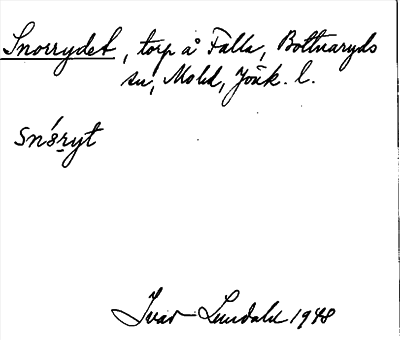 Snorrydet, torp å Fälla, Boltvaryds
su, Mo hd, Jönk. l.
snó̱ryt
Ivar Lundahl 1948